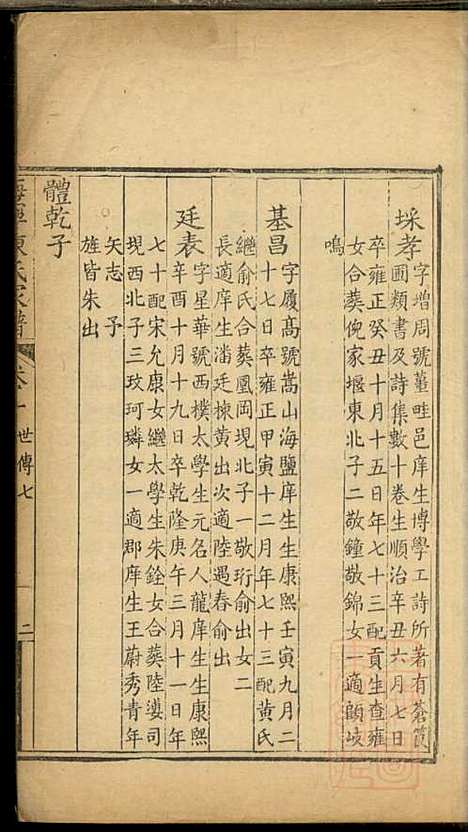 埰孝
字增周號蓳畦邑庠生博學工詩所著有蒼筤
圃類書及詩集數十卷生順治辛丑六月七日
卒雍正癸丑十月十五日年七十三配貢生查雍
女合葬倪家堰東北子二敬鐘敬錦女一適顧岐
鳴
基昌
字履高號嵩山海鹽庠生生康熙壬寅九月二
十七日卒雍正甲寅十二月年七十三配黃氏
繼俞氏合葬鳳岡現北子一敬珩俞出女二
長適庠生潘廷棟黃出次適陸遇春俞出
廷表
字星華號西樸太學生元名人龍庠生生康熙
辛酉十月十九日卒乾隆庚午三月十一日年
七十配宋允康女繼太學生朱銓女合葬陸漊司
現西北子三玫珂璘女一適郡庠生王蔚秀青年
矢志 予
旌皆朱出
體乾子
海寧陳氏家譜
卷十
世傳七
二